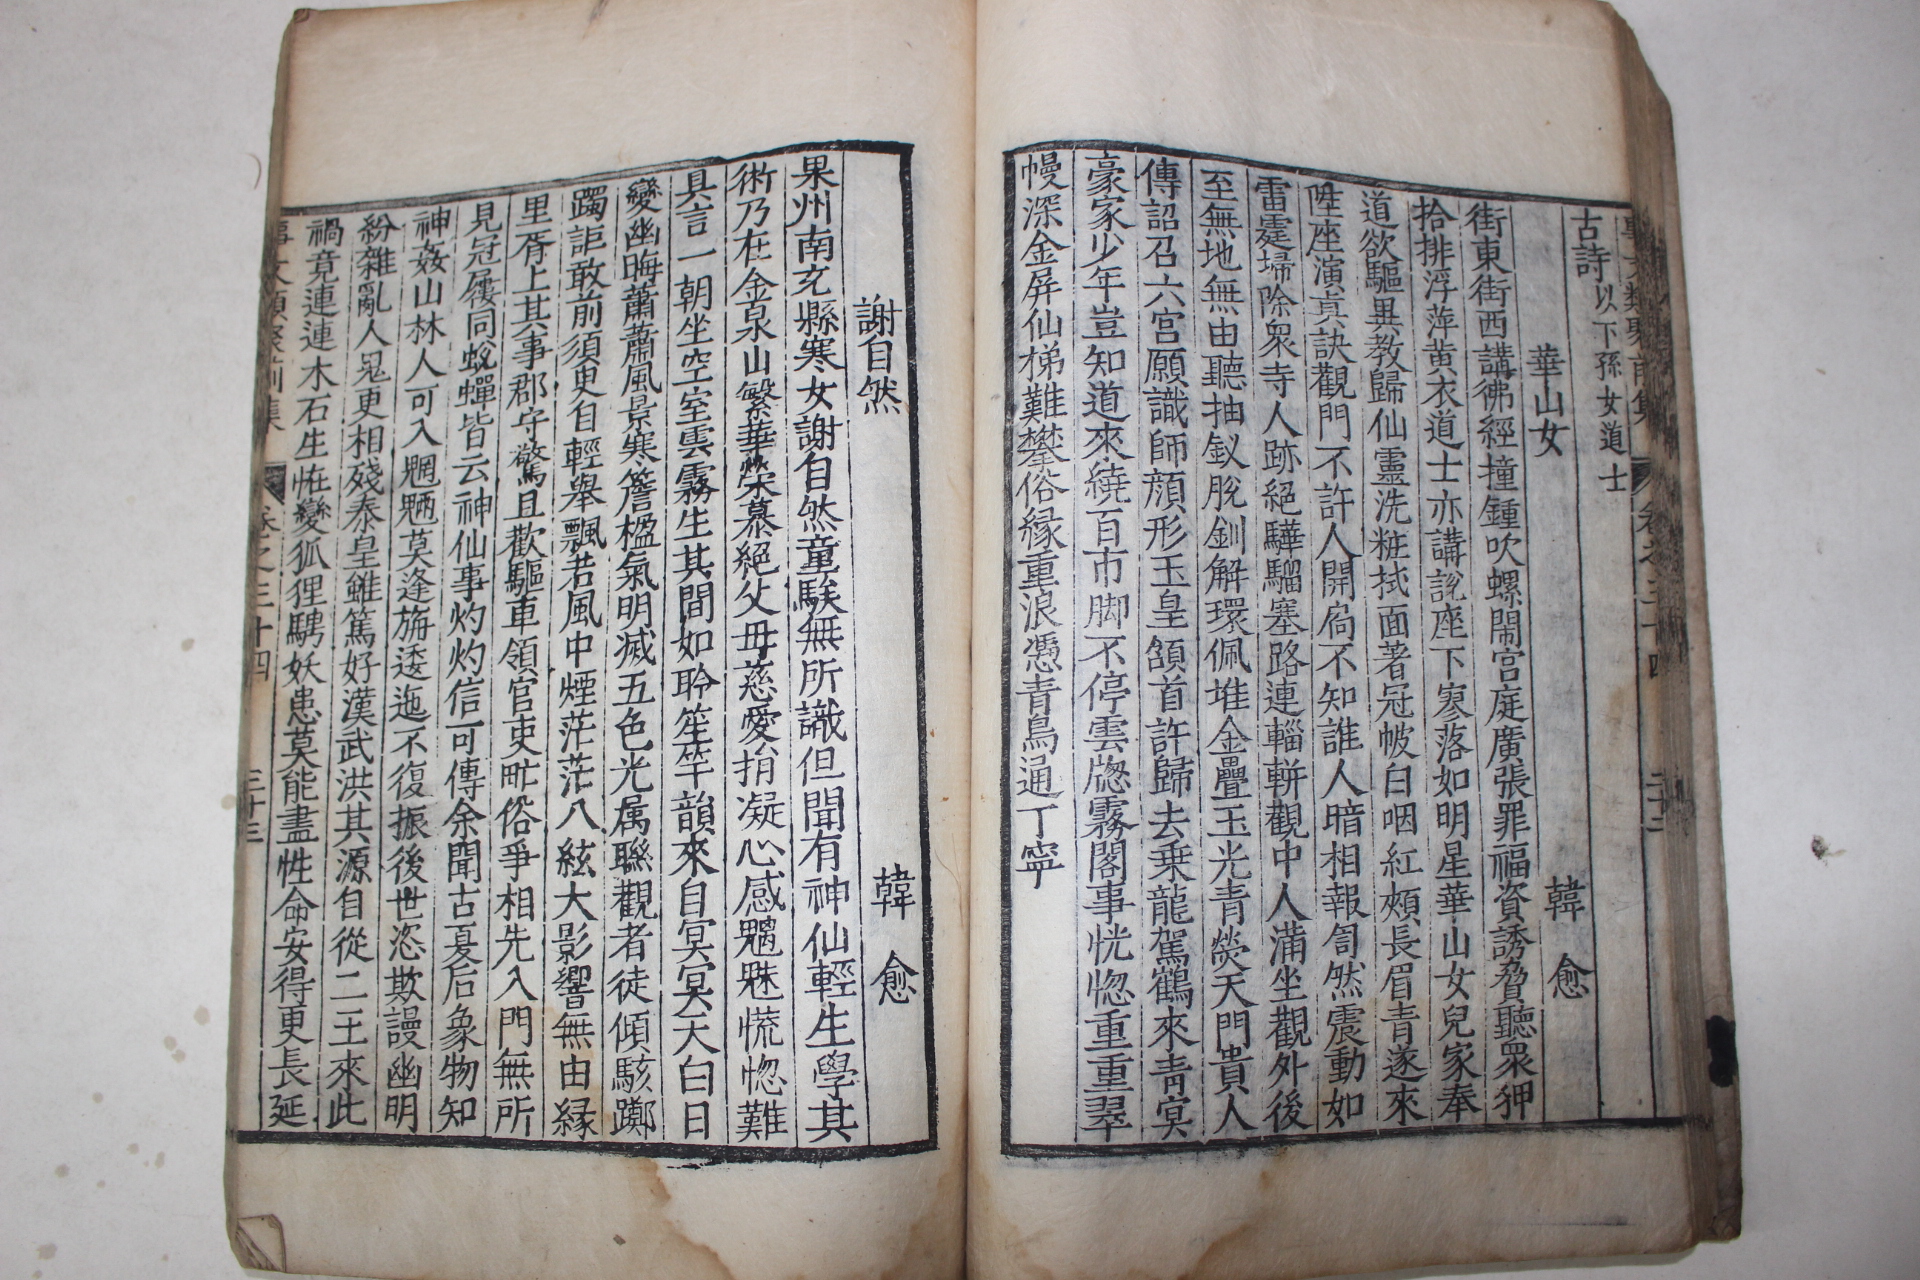 事文類聚前集　卷之三十四
古詩以下孫女道士
華山女　韓愈
街東街西講佛經撞鍾吹螺鬧宮庭廣張罪福資誘脅聽眾狎
拾排浮萍黃衣道士亦講說座下寥落如明星華山女兒家奉
道欲驅異教歸仙靈洗粧拭面著冠帔白咽紅頰長眉青遂來
陞座演真訣觀門不許人開扃不知誰人暗相報訇然震動如
雷霆埽除衆寺人跡絕驊騮塞路連輜軿觀中人滿坐觀外後
至無地無由聽抽釵脫釧解環佩堆金疊玉光青熒天門貴人
傳詔召六宮願識師顏形玉皇頷首許歸去乗龍駕鶴來青冥
豪家少年豈知道來繞百帀脚不停雲牎霧閣事恍惚重重翠
幔深金屏仙梯難攀俗緣重浪憑青鳥通丁寧
謝自然　韓愈
果州南充縣寒女謝自然童騃無所識但聞有神仙輕生學其
術乃在金泉山繁華榮慕絕父母慈愛捐凝心感魑魅慌惚難
具言一朝坐空室雲霧生其間如聆笙竽韻來自冥冥天白日
變幽晦蕭蕭風景寒簷楹氣明滅五色光属聯觀者徒傾駭躑
躅詎敢前須臾自輕舉飄若風中煙茫茫八紘大影響無由緣
里胥上其事郡守驚且歎驅車領官吏甿俗爭相先入門無所
見冠屨同蛻蟬皆云神仙事灼灼信可傳余聞古夏后象物知
神姦山林人可入魍魎莫逢旃逶迤不復振後世恣欺謾幽明
紛雜亂人鬼更相殘秦皇雖篤好漢武洪其源自從二主來此
禍竟連連木石生恠變狐狸騁妖患莫能盡性命安得更長延
事文類聚前集　卷之三十四　三十三